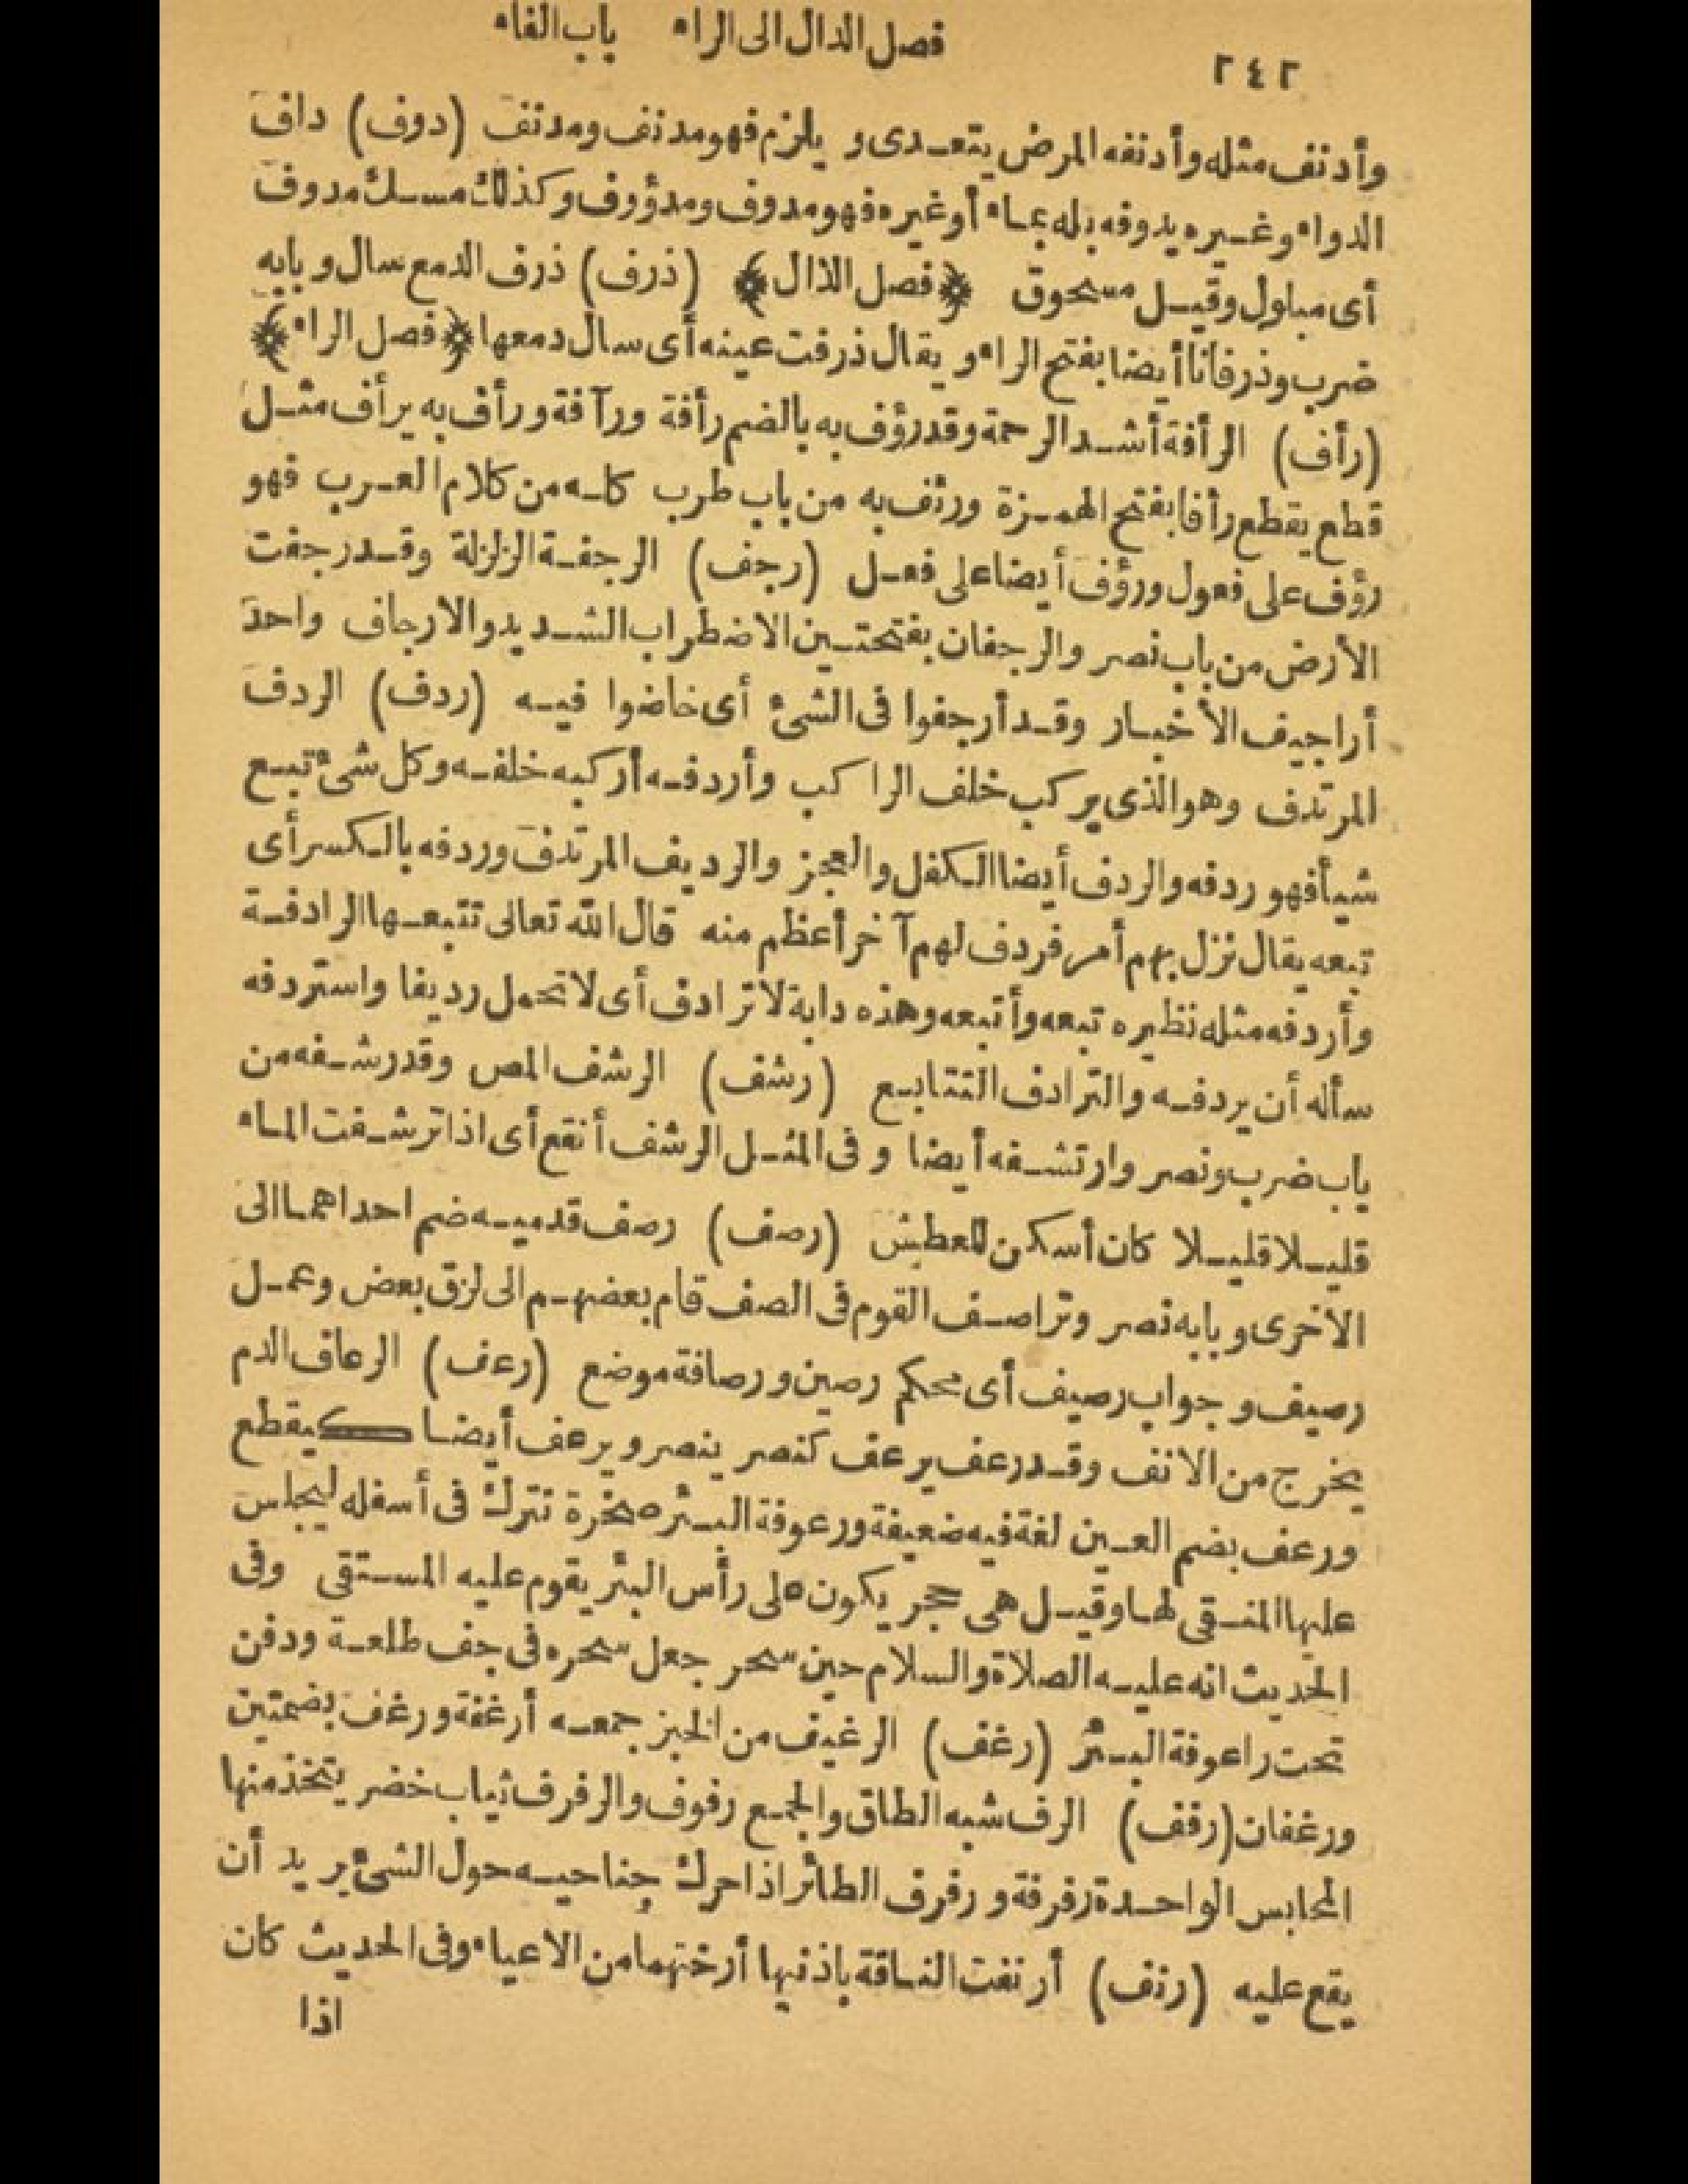 ٢٤٢ فصل الدال الى الراء باب الفاء
وأدنف مثله وأدنفه المرض يتعدى و يلزم فهو مدنف ومدنف (دوف) داف
الدواء وغيره يدوفه بله بماء أو غيره فهو مدوف ومدؤوف وكذلك مسك مدوف
أى مبلول وقيل مسحوق ﴿فصل الذال﴾ (ذرف) ذرف الدمع سال و بابه
ضرب وذرفانا أيضا بفتح الراء و يقال ذرفت عينه أى سال دمعها ﴿فصل الراء﴾
(رأف) الرأفة أشد الرحمة وقد رؤف به بالضم رأفة ورآفة ورأف به يرأف مثل
قطع يقطع رأفا بفتح الهمزة ورئف به من باب طرب كله من كلام العرب فهو
رؤف على فعول ورؤف أيضا على فعل (رجف) الرجفة الزلزلة وقد رجفت
الأرض من باب نصر والرجفان بفتحتين الاضطراب الشديد والارجاف واحد
أراجيف الأخبار وقد أرجفوا فى الشئ أى خاضوا فيه (ردف) الردف
المرتدف وهو الذى يركب خلف الراكب وأردفه أركبه خلفه وكل شئ تبع
شيأ فهو ردفه والردف أيضا الكفل والعجز والرديف المرتدف وردفه بالكسر أى
تبعه يقال نزل بهم أمر فردف لهم آخر أعظم منه قال الله تعالى تتبعها الرادفة
وأردفه مثله نظيره تبعه وأتبعه وهذه دابة لا ترادف أى لا تحمل رديفا واستردفه
سأله أن يردفه والترادف التتابع (رشف) الرشف المص وقد رشفه من
باب ضرب ونصر وارتشفه أيضا و فى المثل الرشف أنقع أى اذا ترشفت الماء
قليلا قليلا كان أسكن للعطش (رصف) رصف قدميه ضم احداهما الى
الاخرى و بابه نصر وتراصف القوم فى الصف قام بعضهم الى لزق بعض وعمل
رصيف و جواب رصيف أى محكم رصين و رصافة موضع (رعف) الرعاف الدم
يخرج من الانف وقد رعف يرعف كنصر ينصر و يرعف أيضا كيقطع
ورعف بضم العين لغة فيه ضعيفة ورعوفة البئر صخرة تترك فى أسفله ليجلس
عليها المنقى لها وقيل هى حجر يكون على رأس البئر يقوم عليه المستقى وفى
الحديث انه عليه الصلاة والسلام حين سحر جعل سحره فى جف طلعة ودفن
تحت راعوفة البئر (رغف) الرغيف من الخبز جمعه أرغفة و رغف بضمتين
ورغفان (رفف) الرف شبه الطاق والجمع رفوف والرفرف ثياب خضر يتخذ منها
المحابس الواحدة رفرفة و رفرف الطائر اذا حرك جناحيه حول الشئ يريد أن
يقع عليه (رنف) أرنفت الناقة باذنيها أرختهما من الاعياء وفى الحديث كان
اذا